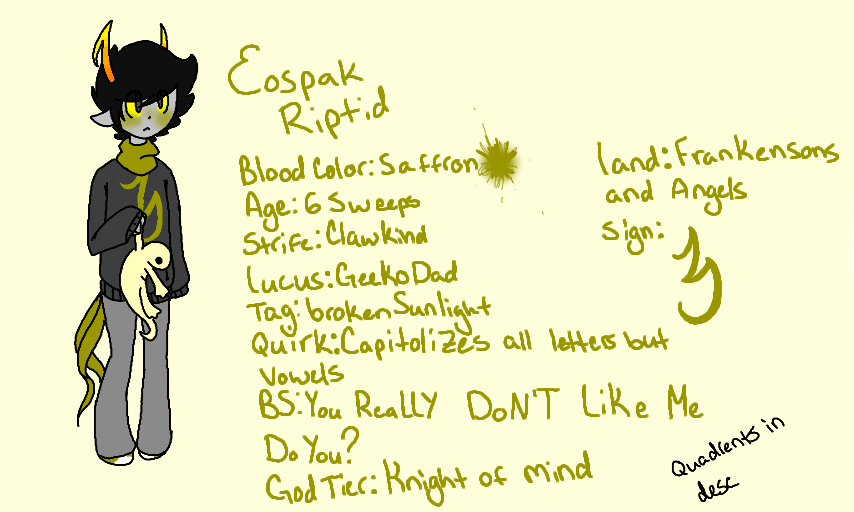 Eospak
Riptid
Blood Color: Saffron
Age: 6 Sweeps
Strife: Clawkind
lucus: GeekoDad
Tag: brokenSunlight
Quirk: Capitolizes all letters but
vowels
BS: You ReaLLY DoN'T LiKe Me
Do You?
God Tier: Knight of mind
land: Frankensons
and Angels
sign:
Quadrients in
desc